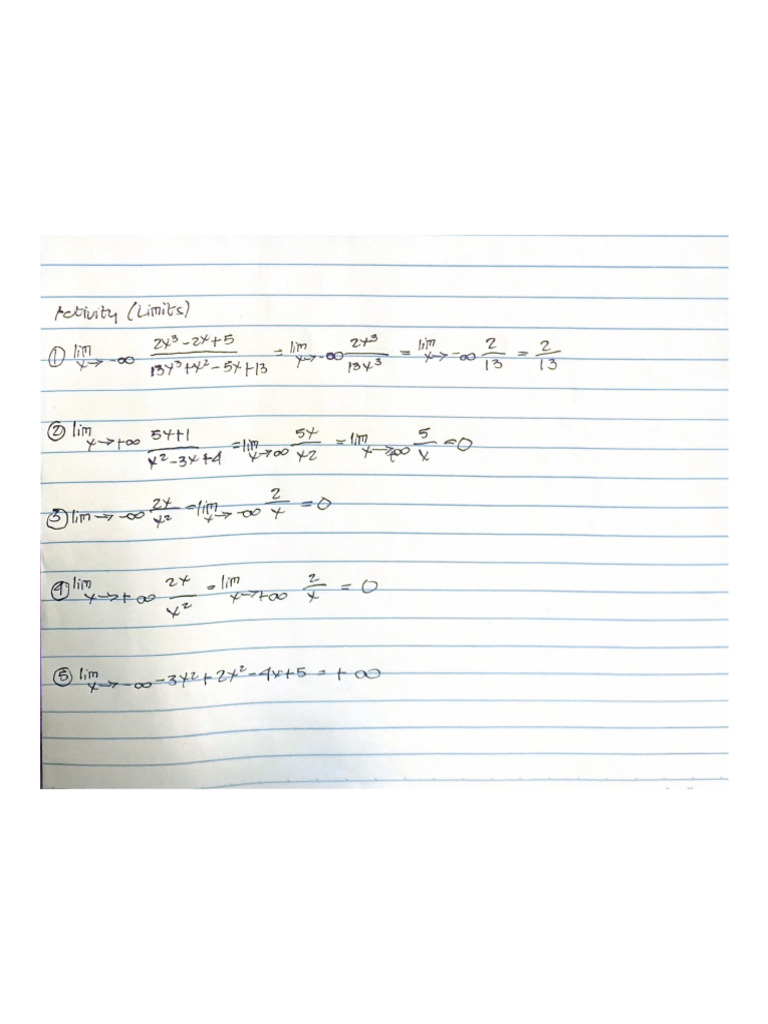 Activity (Limits)
① lim x→-∞ (2x³-2x+5)/(13x³+x²-5x+13) = lim x→-∞ 2x³/13x³ = lim x→-∞ 2/13 = 2/13
② lim x→+∞ (5x+1)/(x²-3x+4) = lim x→∞ 5x/x2 = lim x→∞ 5/x = 0
③ lim → -∞ 2x/x² = lim x→-∞ 2/x = 0
④ lim x→+∞ 2x/x² = lim x→+∞ 2/x = 0
⑤ lim x→-∞ -3x²+2x²-4x+5 = +∞